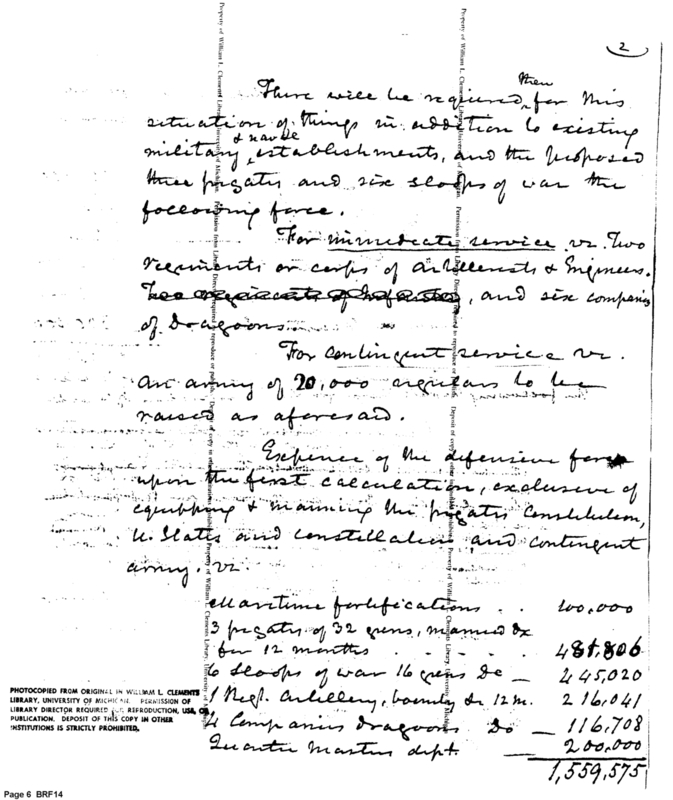 2
There will be required, then for this
situation of things in addition to existing
military & naval establishments, and the proposed
three frigates and six sloops of war the
following force.
For immediate service vz. Two
regiments or corps of Artillerists & Engineers.
, and six companies
of Dragoons.
For contingent service vz.
An army of 20,000 regulars to be
raised as aforesaid.
Expence of the defensive force
upon the first calculation, exclusive of
equipping & manning the frigates Constitution,
U. States and Constellation and contingent
army. vz.
Maritime fortifications . . 100,000
3 frigates of 32 guns, manned &c
for 12 months . . . . 481.806
6 Sloops of war 16 guns Do — 445,020
1 Regt. Artillery, bounty &c 12 m. 216,041
4 Companies dragoons Do — 116,708
Quarter Masters dept. — 200.000
1,559,575
PHOTOCOPIED FROM ORIGINAL IN WILLIAM L. CLEMENTS
LIBRARY, UNIVERSITY OF MICHIGAN. PERMISSION OF
LIBRARY DIRECTOR REQUIRED FOR REPRODUCTION, USE, OR
PUBLICATION. DEPOSIT OF THIS COPY IN OTHER
INSTITUTIONS IS STRICTLY PROHIBITED.
Page 6 BRF14